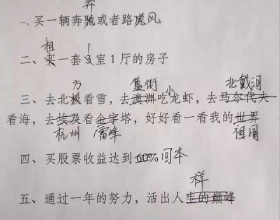 奔
一、买一辆奔驰或者路虎风
租 1
二、买一套3室1厅的房子
万 簋街 小 北戴河
三、去北极看雪，去澳洲吃龙虾，去马尔代夫
看海，去埃及看金字塔，好好看一看我的世界
杭州 雷峰 祖国
四、买股票收益达到60%回本
样
五、通过一年的努力，活出人生的巅峰